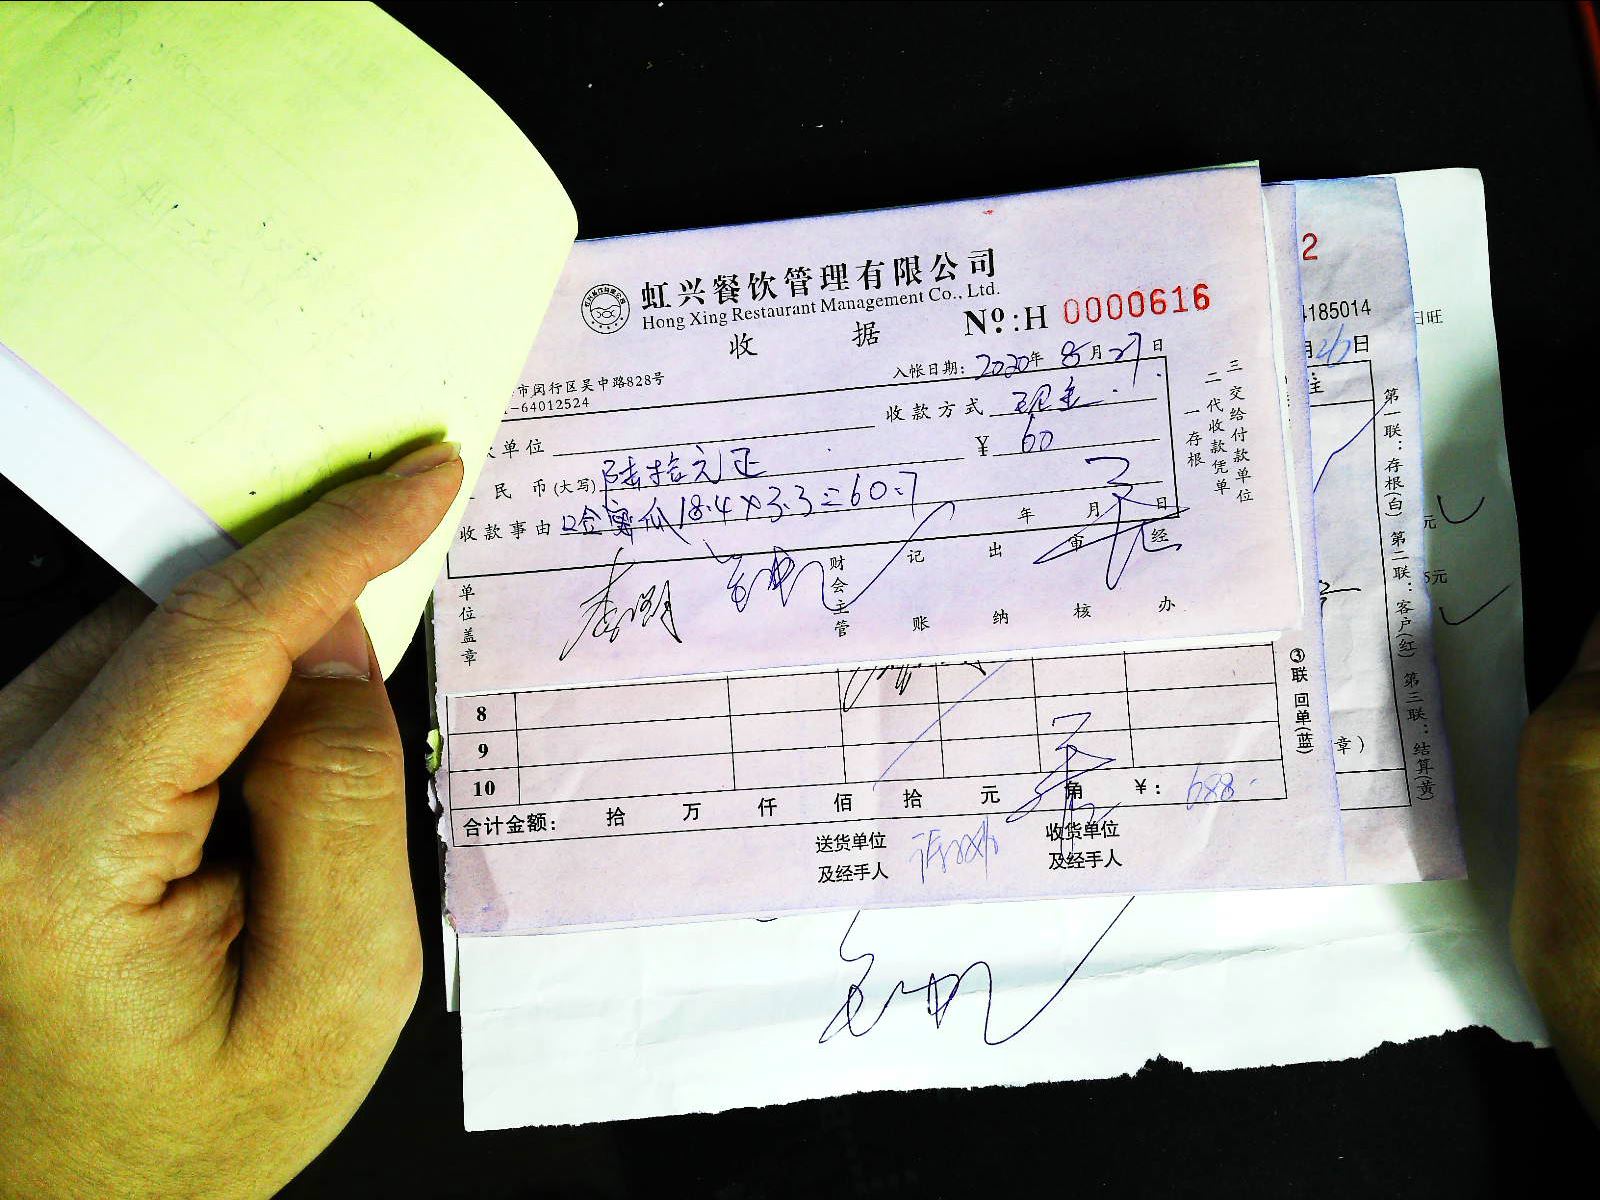 虹兴餐饮管理有限公司
Hong Xing Restaurant Management Co., Ltd.
收 据 Nº.:H 0000616
市闵行区吴中路828号
-64012524
入帐日期: 2020年 8月 27日
单位 收款方式 现金
民 币(大写) 陆拾元正 ¥ 60
收款事由 瓜 18.4×3.3=60.7
年 月 日
三交给付款单位
二代收款凭单
一存根
单位盖章
财会主管
记账
出纳
审核
经办
8
9
10
合计金额: 拾 万 仟 佰 拾 元 角 ¥: 688
送货单位
及经手人
收货单位
及经手人
③联 回单(蓝)
2
4185014
月26日
章)
第一联:存根(白) 第二联:客户(红) 第三联:结算(黄)
日旺
元
5元